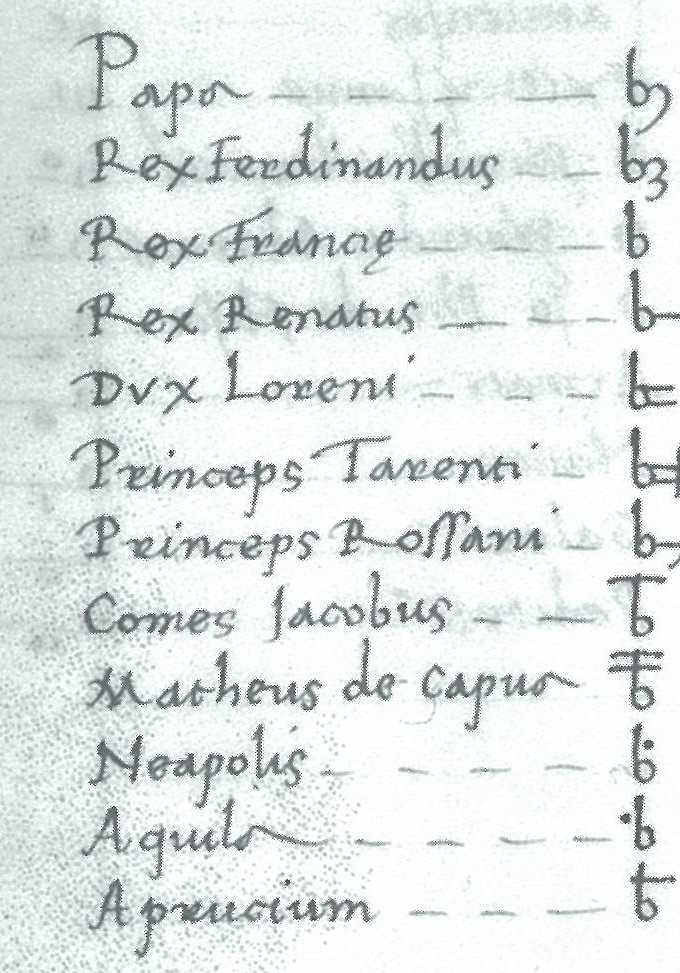 Papa
Rex Ferdinandus
Rex Francie
Rex Renatus b
Dux Loreni
Princeps Tarenti
Princeps Rossani
Comes Jacobus
Matheus de Capua
Neapolis
Aquila
Aprucium